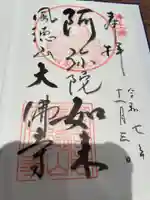 奉拝
令和七年
十一月三日
阿弥陀如来
鳳徳山大佛寺